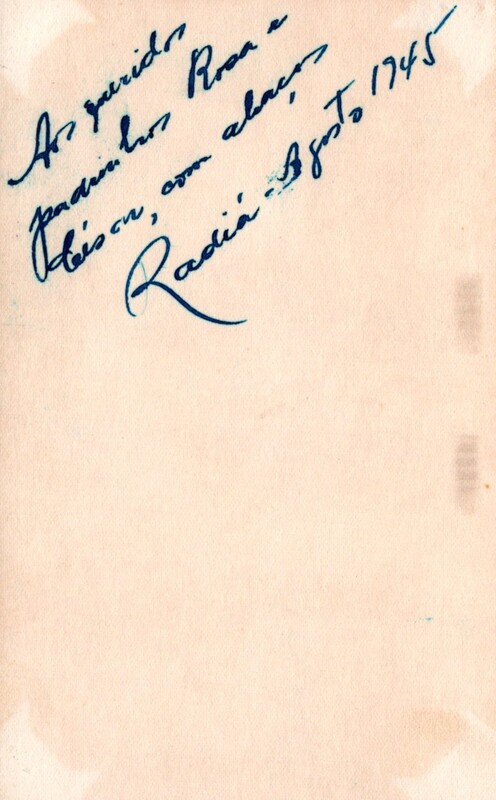 Aos queridos
padrinhos Rosa e
com abraços,
Radiá - Agosto 1945